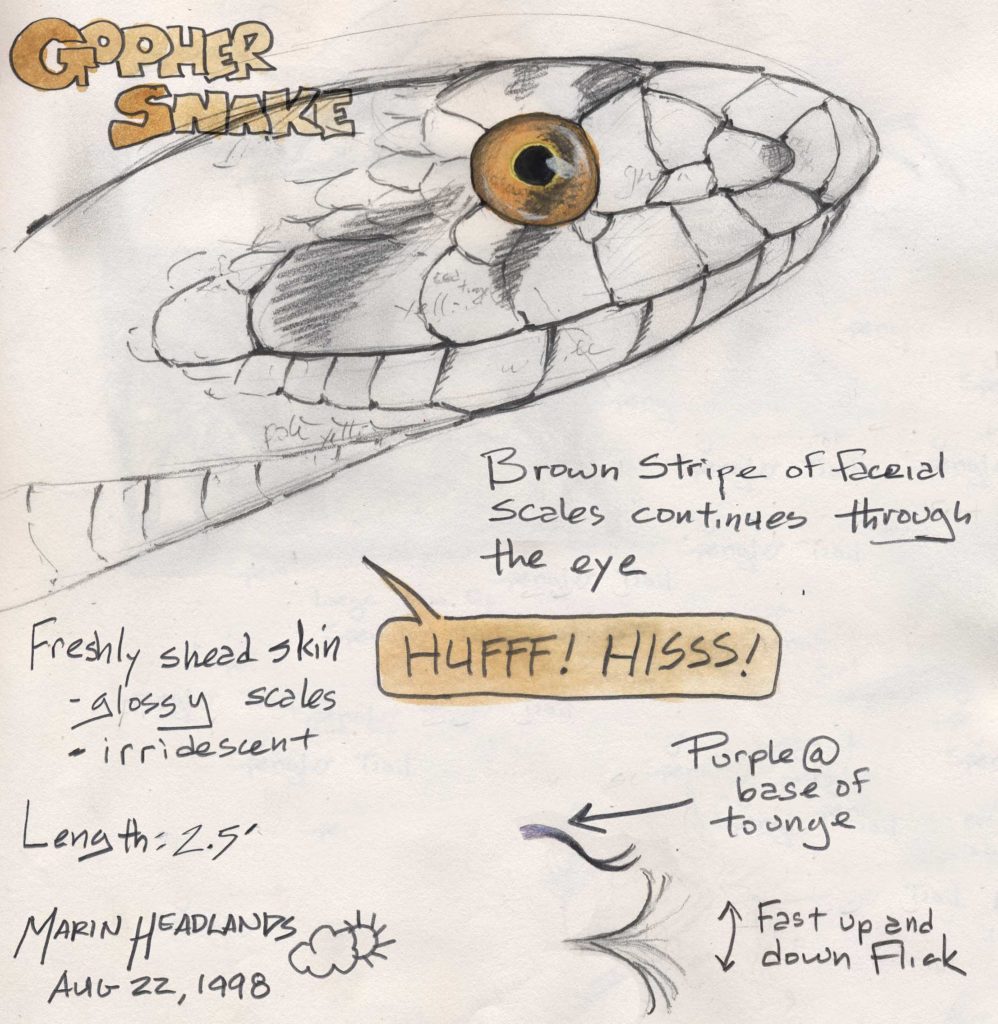 GOPHER
SNAKE
Brown Stripe of Facial
scales continues through
the eye
HUFFF! HISSS!
Freshly shead skin
- glossy scales
- irridescent
Length: 2.5'
Purple @
base of
tounge
Fast up and
down Flick
MARIN HEADLANDS
AUG 22, 1998